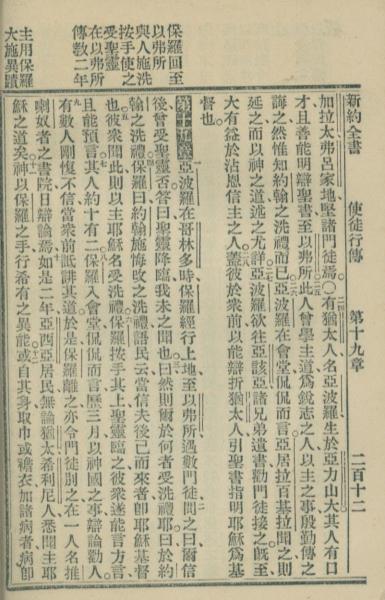 新約全書 使徒行傳 第十九章 二百十二
加拉太弗呂家地堅諸門徒焉○有猶太人名亞波羅生於亞力山大其人有口
才且善能明辯聖書至以弗所此人曾學主道爲銳志之人以主之事殷勤傳之
誨之然惟知約翰之洗禮而已亞波羅在會堂侃侃而言亞居拉百基拉聞之則
延之而以神之道述之尤詳亞波羅欲往亞該亞諸兄弟遺書勸門徒接之旣至
大有益於沾恩信主之人蓋彼於衆前以能辯折猶太人引聖書指明耶穌爲基
督也
第十九章 一亞波羅在哥林多時保羅經行上地至以弗所遇數門徒二問之曰爾信
後曾受聖靈否答曰聖靈降臨我未之聞也三曰然則爾於何者受洗禮耶曰於約
翰之洗禮保羅曰約翰施悔改之洗禮語民云當信夫後己而來者卽耶穌基督
也彼衆聞此則以主耶穌名受洗禮保羅按手其上聖靈臨之彼衆遂能言方言
且能預言其人約十有二保羅入會堂侃侃而言歷三月以神國之事辯論勸人
有數人剛愎不信當衆前詆誹其道於是保羅離之亦令門徒別之在一人名推
喇奴者之書院日辯論焉如是二年亞西亞居民無論猶太希利尼人悉聞主耶
穌之道矣神以保羅之手行希有之異能或自其身取巾或襜衣加諸病者病卽
保羅回至
以弗所
與人施洗
按手使之
受聖靈
在以弗所
傳教二年
主用保羅
大施異蹟